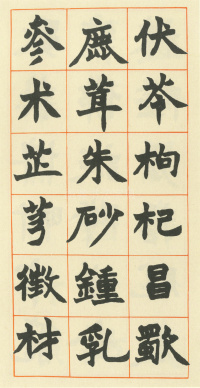 伏苓枸杞昌歜
鹿茸朱砂鍾乳
參术芷芎徵材